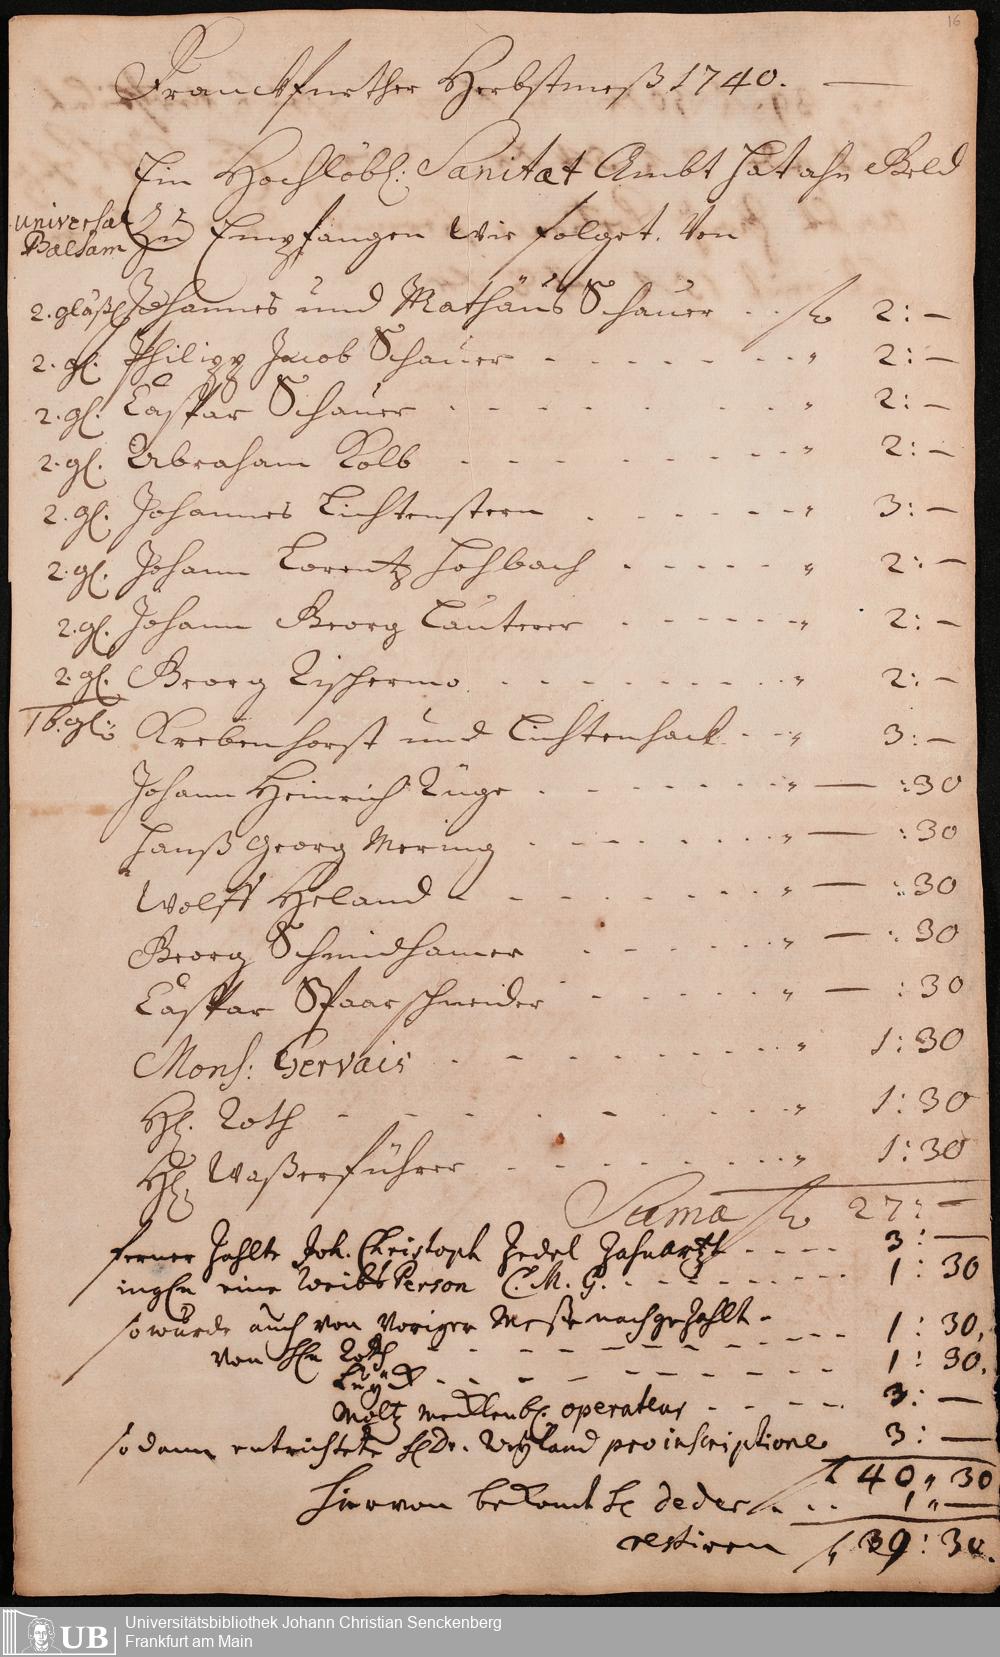 16
Franckfurther Herbstmeß 1740. —
Ein Hochlöbl: Sanitæt Ambt hat ahn Geld
Universal Zu Empfangen wie folget. Von
Balsam
2. gläßl Johannes und Mathäus Schauer . . fl 2: —
2. gl. Philipp Jacob Schauer - - - - - - - " 2: —
2. gl. Caspar Schauer - - - - - - - - " 2: —
2. gl. Abraham Kolb - - - - - - - - " 2: —
2. gl. Johannes Lichtenstern - - - - - - " 3: —
2. gl. Johann Lorentz Hohbach - - - - - " 2: —
2. gl. Johann Georg Lauterer - - - - - - " 2: —
2. gl. Georg Tischermo - - - - - - - - " 2: —
16. gl: Krebenhorst und Lichtenhack - - " 3: —
Johann Heinrich Rüge - - - - - - - " — :30
Hanß Georg Mering - - - - - - - " — :30
Wolff Heland - - - - - - - - " — :30
Georg Schmidhamer - - - - - - " — :30
Caspar Spaarschneider - - - - - - " — :30
Mons: Gervais - - - - - - - - " 1:30
H. Roth - - - - - - - - - " 1:30
H. Waßerführer - - - - - - - " 1:30
Suma fl 27: —
ferner zahlte Joh. Christoph Zedel Zahnartzt - - - - 3: —
ingln eine Weibs Person C. M. G. - - - - - - - - 1: 30
so wurde auch von voriger Meße nachgezahlt -
von Hn Roth - - - - - - - - - 1: 30.
- - - - - - - - - 1: 30.
Moltz operateur - - - - - 3: —
sodann entrichtete H Dr. Weyland pro inscriptione 3: —
fl 40 " 30
hiervon bekomt H deder - . . 1 " —
restiren fl 39: 30.
UB Universitätsbibliothek Johann Christian Senckenberg
Frankfurt am Main